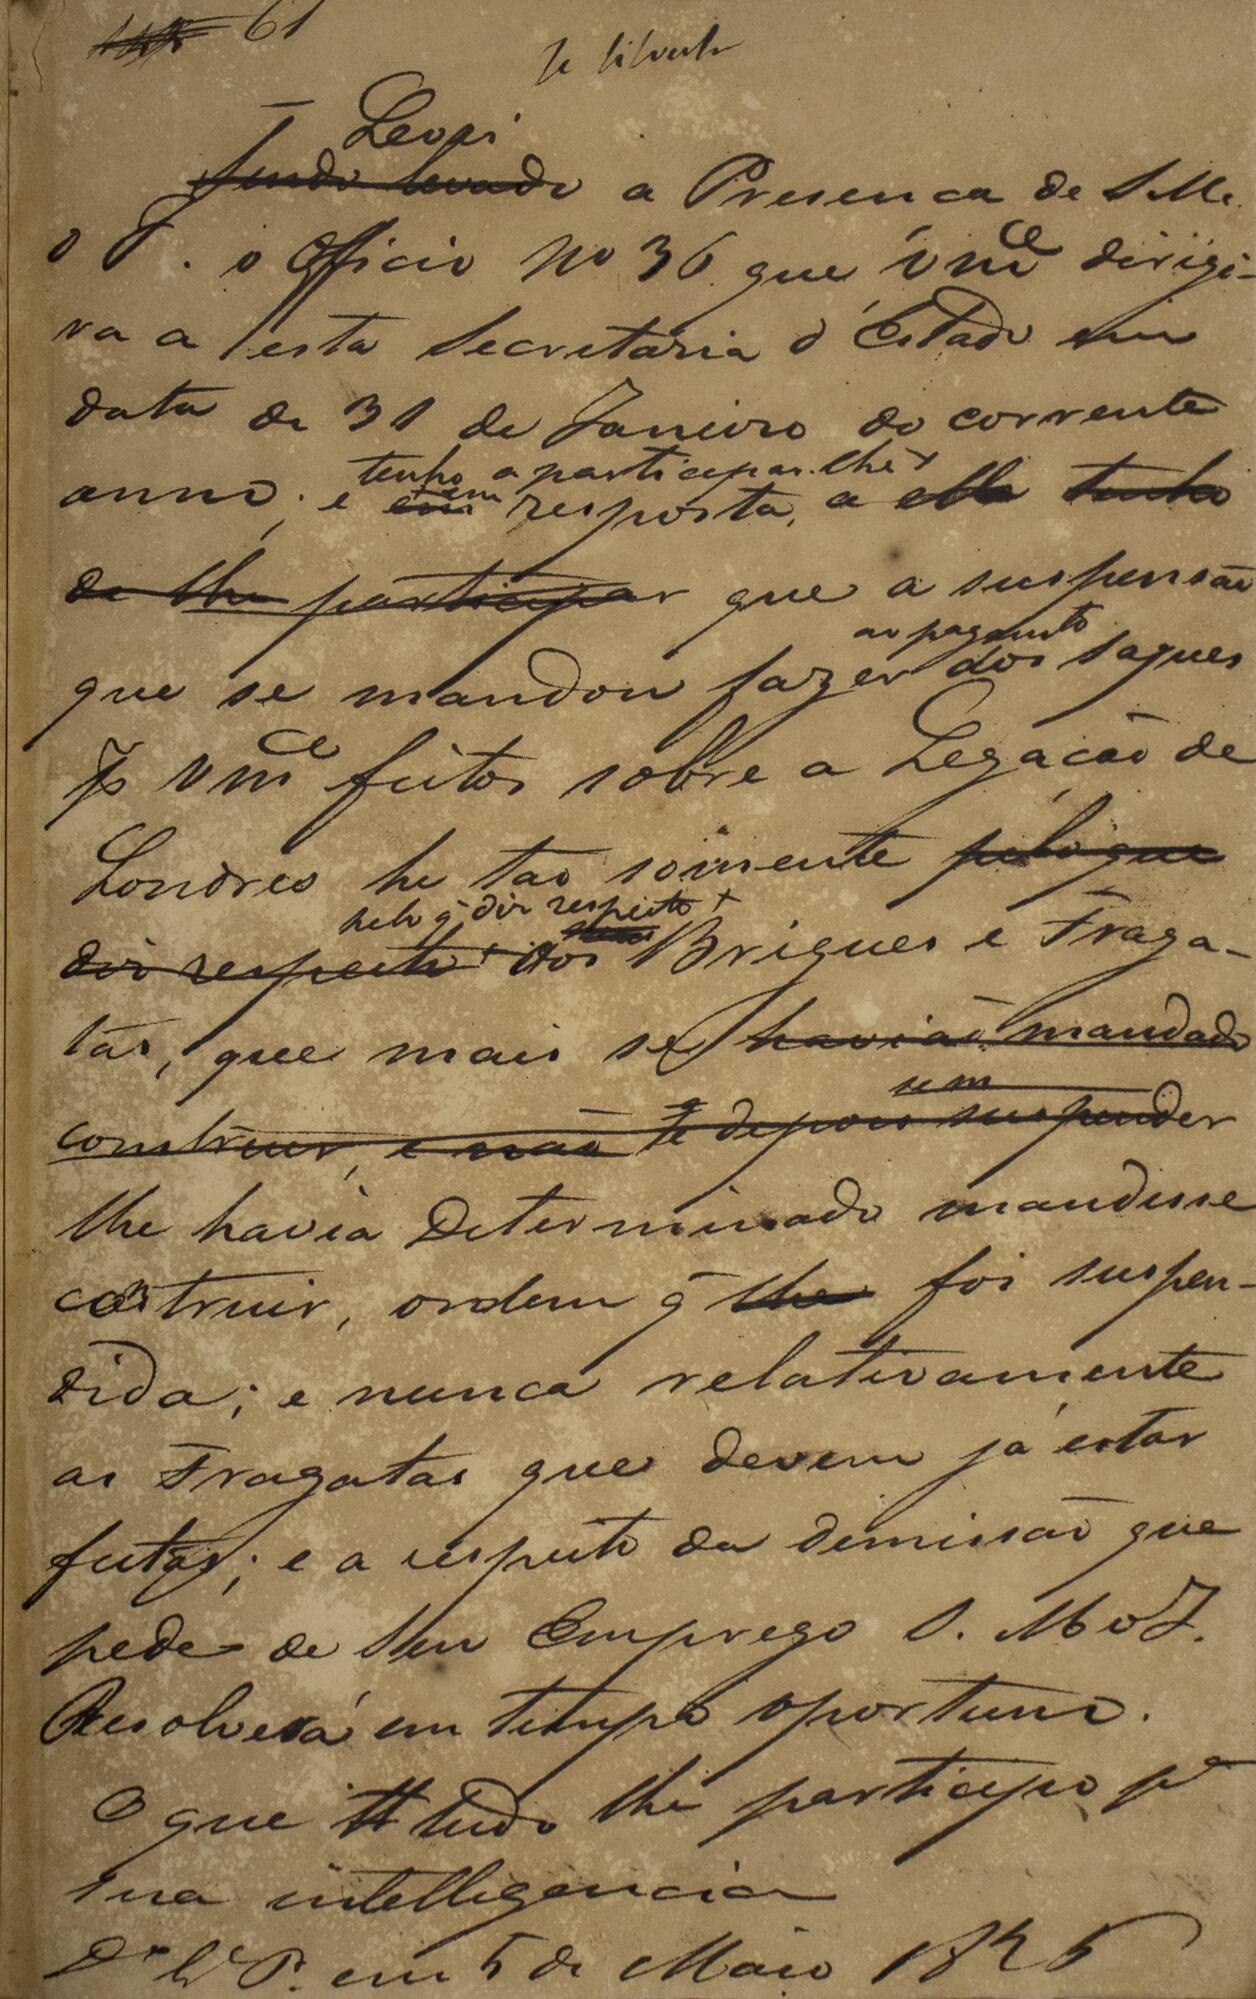 61
Levei
Sendo levado a Presença de S. M.
o I. o Officio No 36 que Vmce dirigi-
ra a esta Secretaria d'Estado em
data de 31 de Janeiro do corrente
tenho a participar-lhe
anno; e em em resposta, a elle tenho
de lhe participar que a suspensão
ao pagamto
que se mandou fazer dos saques
p Vmce feitos sobre a Legação de
Londres he tao sómente pelo que
pelo q̃ diz respeito
diz respeito aos Brigues e Fraga-
tas, que mais se havião mandado
sem
construir, e não se depois suspender
lhe havia Determinado mandasse
construir, ordem q̃ lhe foi suspen-
dida; e nunca relativamente
as Fragatas que devem já estar
feitas; e a respeito da demissão que
pede de Seu Emprego S. M. o I.
Resolverá em tempo oportuno.
O que tudo lhe participo pa
sua intelligencia
Ds Ge em 5 de Maio 1826